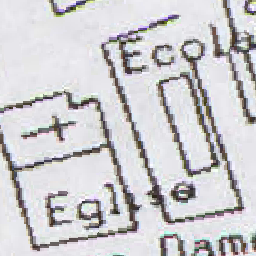 Ecole
Eglise
Dame